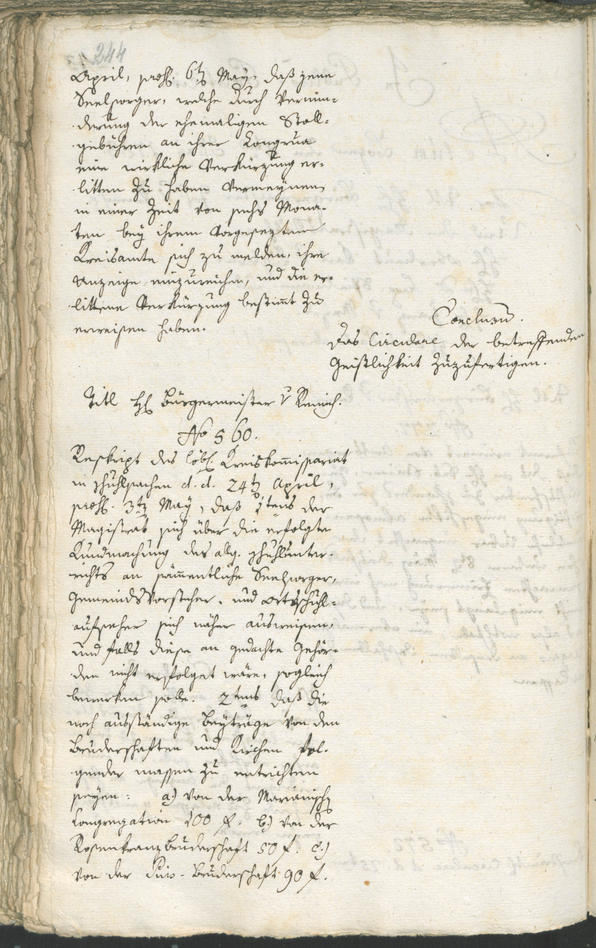 244
April, praes. 6t May, daß jene
Seelsorger, welche durch Vermin-
derung der ehemaligen Stoll-
gebühren an ihrer Kongrua
eine wirkliche Verkürzung er-
litten zu haben vermeynen,
in einer Zeit von sechs Mona-
ten bey ihrem vorgesezten
Kreisamte sich zu melden, ihre
Anzeige einzureichen, und die er-
littene Verkürzung bestimt zu
erweisen haben.
Conclusum.
Das Circulare der betreffenden
Geistlichkeit zuzufertigen.
Titl H Bürgermeister v
No 560.
Reskript des löbl. Kreiskommissariat
in Schulsachen d. d. 24t April,
praes. 3t May, daß 1tens der
Magistrat sich über die erfolgte
Kundmachung des allg. Schulunter-
richts an sämmentliche Seelsorger,
Gemeindsvorsteher, und Ortsschul-
aufseher sich näher ausweisen,
und falls diese an gedachte Behör-
den nicht erfolget wäre, sogleich
bewerken solle. 2tens daß die
noch ausständige Beyträge von den
Bruderschaften und Kirchen fol-
gender massen zu entrichten
seyen: a) von der Marianisch
Congregation 100 f. b) von der
Rosenkranzbruderschaft 50 f. c)
von der Bruderschaft 90 f.